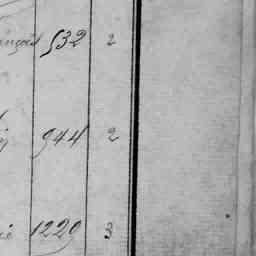 532 2
944 2
1229 3